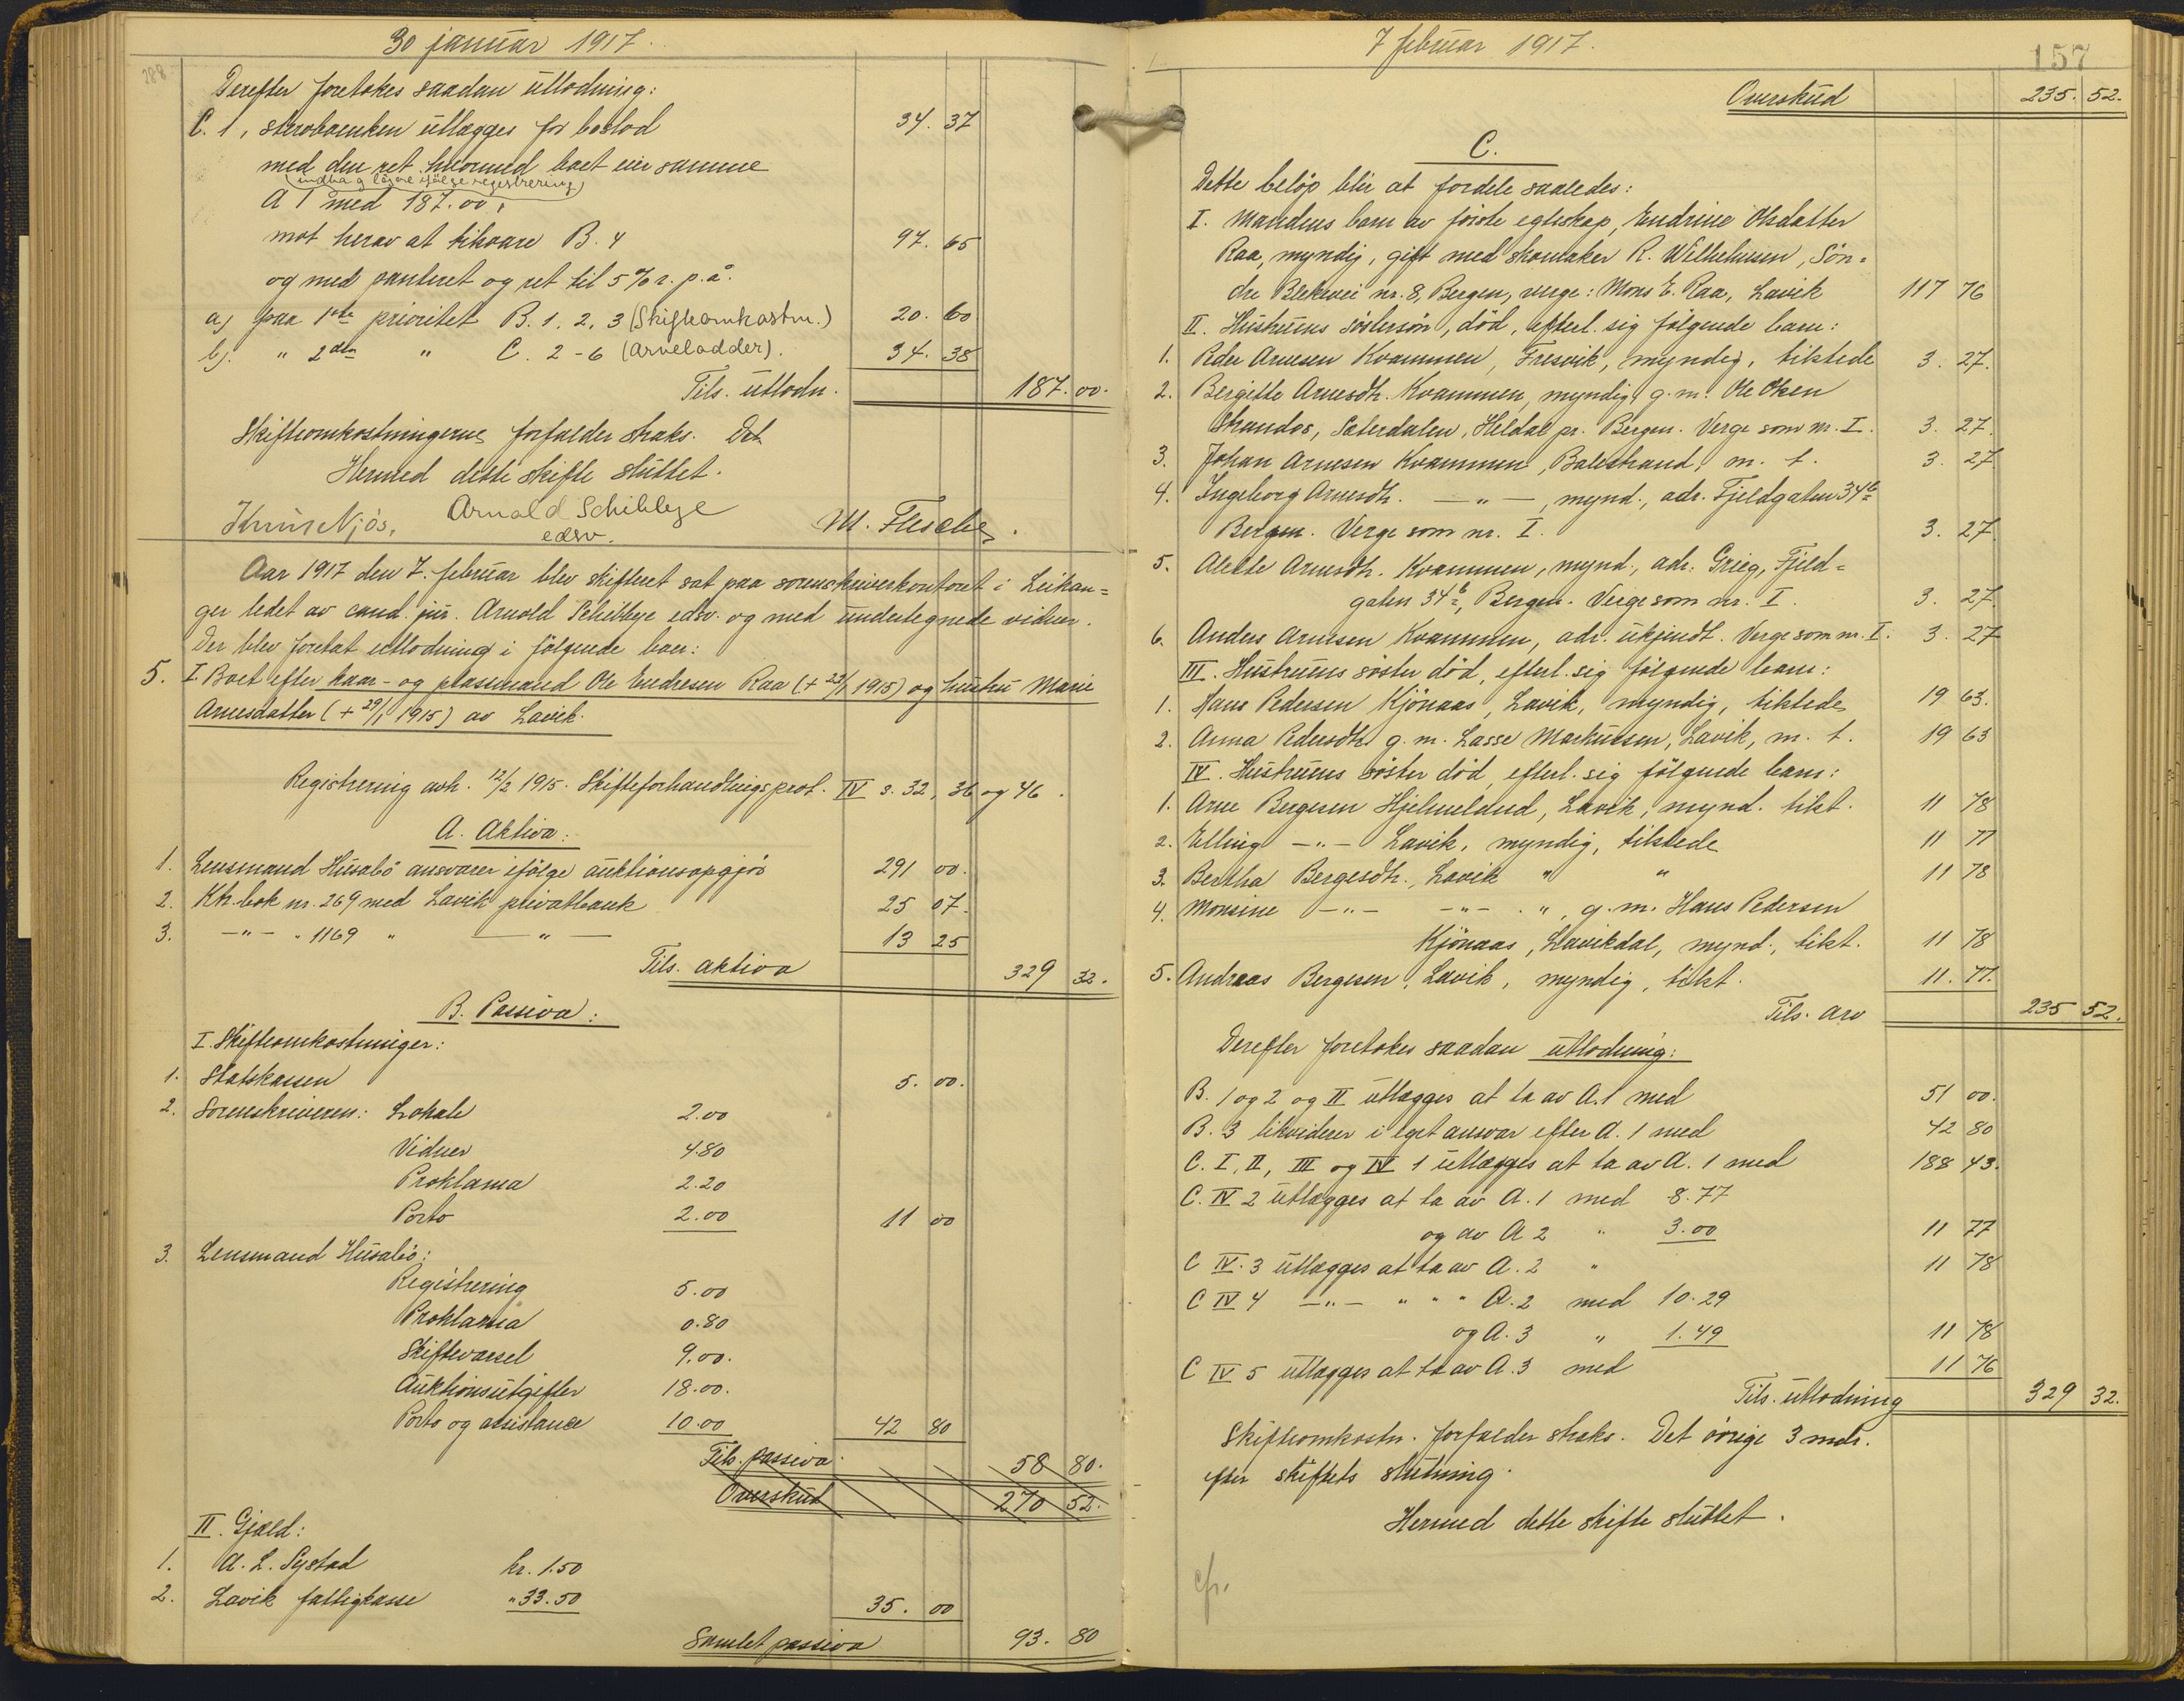 30 januar 1917.
288
Derefter foretokes saadan utlodning:
C. 1, skrobænken utlægges for boslod 34. 37
med den ret hvormed boet eier samme
(indbo g løsøre ifølge registrering)
A 1 med 187.00,
mot herav at tilsvare B. 4 97. 65
og med panteret og ret til 5 % r. p. å.
a) paa 1ste prioritet B. 1, 2, 3 (Skifteomkostn.) 20. 60
b). " 2den " C. 2-6 (Arvelodder). 34. 38
Tils. utlodn. 187. 00.
Skifteomkostningerne forfalder straks. Det
Hermed dette skifte sluttet.
Knut Njøs. Arnold Schibbye M. Flesche.
edsv.
Aar 1917 den 7. februar blev skifteret sat paa sorenskriverkontoret i Leikan=
ger ledet av cand. jur. Arnold Schibbye edsv. og med undertegnede vidner.
Der blev foretat utlodning i følgende boer:
5. I Boet efter kaar- og plassmand Ole Endresen Raa (+ 23/1 1915) og hustru Marie
Arnesdatter (+ 29/1 1915) av Lavik.
Registrering avh. 12/2 1915. Skifteforhandlingsprot. IV s. 32, 36 og 46.
A. Aktiva:
1. Lensmand Husabö ansvarer ifølge auktionsopgjör 291 00.
2. Ktr. bok nr. 269 med Lavik privatbank 25 07.
3. -"- " 1169 " -"- 13 25
Tils. aktiva 329 32.
B. Passiva:
I. Skifteomkostninger:
1. Statskassen 5. 00.
2. Sorenskriveren: Lokale 2.00
Vidner 4.80
Proklama 2.20
Porto 2.00 11 00
3. Lensmand Husabö:
Registrering 5.00
Proklama 0.80
Skiftevarsel 9.00.
Auktionsutgifter 18.00.
Porto og assistance 10.00 42 80
Tils. passiva 58 80.
Overskud 270 52.
II. Gjæld:
1. A. L. Systad kr. 1.50
2. Lavik fattigkasse " 33.50 35. 00
Samlet passiva 93. 80
7 februar 1917.
157
Overskud 235. 52.
C.
Dette beløp blir at fordele saaledes:
I. Mandens barn av første egteskap, Endrine Olsdatter
Raa, myndig, gift med skomaker R. Wilhelmsen, Søn=
dre Blekevei nr. 8, Bergen, verge: Mons E. Raa, Lavik 117 76
II. Hustruens søstersøn, död, efterl. sig følgende barn:
1. Peder Arnesen Kvammen, Fresvik, myndig, tilstede 3. 27.
2. Bergitte Arnesdtr. Kvammen, myndig g. m. Ole Olsen
Strandos, Sæterdalen, Heldal pr. Bergen. Verge som nr. I. 3. 27.
3. Johan Arnesen Kvammen, Balestrand, m. t. 3. 27
4. Ingeborg Arnesdtr. -"-, mynd., adr. Fjeldgaten 34b
Bergen. Verge som nr. I. 3. 27
5. Alette Arnesdtr. Kvammen, mynd., adr. Grieg, Fjeld=
gaten 34b, Bergen. Verge som nr. I. 3. 27.
6. Anders Arnesen Kvammen, adr. ukjendt. Verge som nr. I. 3. 27
III. Hustruens søster död, efterl. sig følgende barn:
1. Hans Pedersen Kjönaas, Lavik, myndig, tilstede 19 63.
2. Anna Pedersdtr. g. m. Lasse Markussen, Lavik, m. t. 19 63
IV. Hustruens søster död, efterl. sig følgende barn:
1. Arne Bergesen Hjelmeland, Lavik, mynd. tilst. 11 78
2. Elling -"- Lavik, myndig, tilstede 11 77
3. Bertha Bergesdtr., Lavik " " 11 78
4. Monsine -"- -"- ", g. m. Hans Pedersen
Kjönaas, Lavikdal, mynd., tilst. 11 78
5. Andreas Bergesen, Lavik, myndig, tilst. 11. 77.
Tils. arv 235 52.
Derefter foretokes saadan utlodning:
B. 1 og 2 og II utlægges at ta av A.1 med 51 00.
B. 3 likviderer i eget ansvar efter A. 1 med 42 80
C. I, II, III og IV 1 utlægges at ta av A. 1 med 188 43.
C. IV 2 utlægges at ta av A. 1 med 8.77
og av A 2 " 3.00 11 77
C IV. 3 utlægges at ta av A. 2 " 11 78
C IV 4 -"- " " " A. 2 med 10.29
og A. 3 " 1.49 11 78
C IV 5 utlægges at ta av A. 3 med 11 76
Tils. utlodning 329 32.
Skifteomkostn. forfalder straks. Det övrige 3 mdr.
efter skiftets slutning.
Hermed dette skifte sluttet.
cfr.